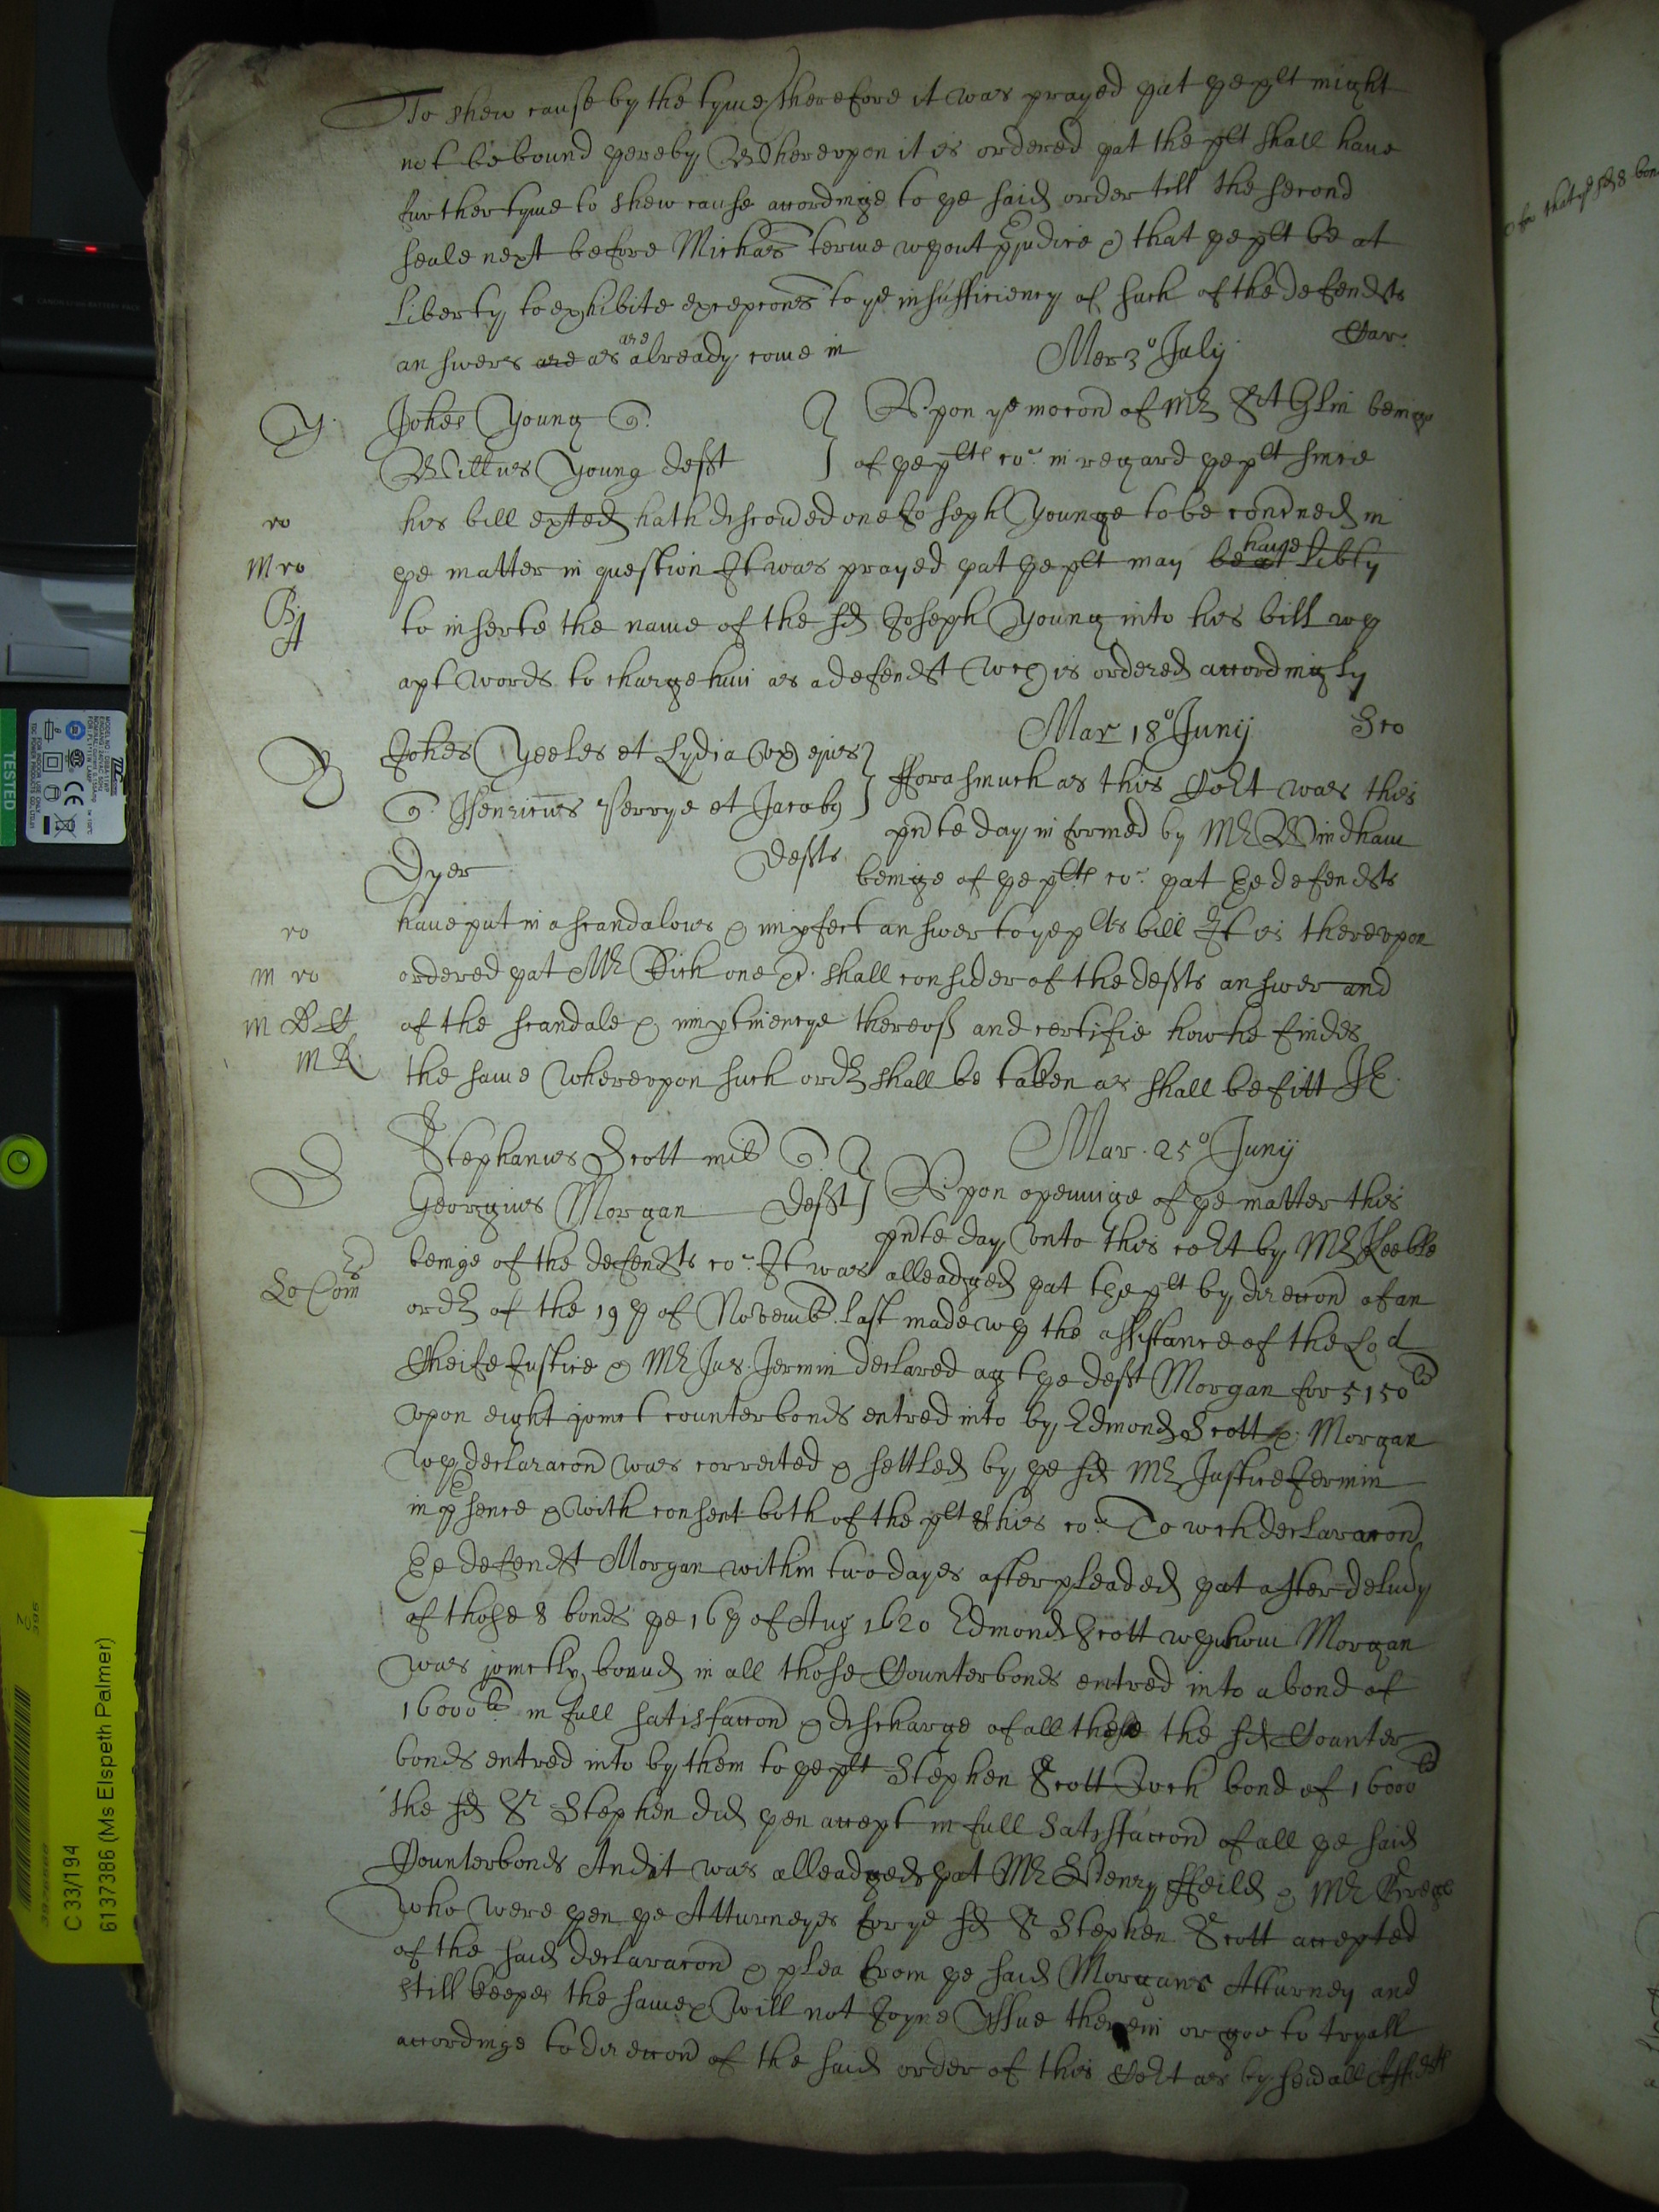 To shew cause by the tyme therefore it was prayed yat ye plt might
not be bound yereby Wherevpon it is ordered yat the plt shall haue
further tyme to shew cause accordinge to ye said order till the second
seale next before Michas terme wyout p̱iudice & that ye plt be at
liberty to exhibite excepcons to ye insufficiency of such of the defendts
answers are as are already come in
Mer 3° July
Car.
Y
Johes Young q.
Willus Young deft
Vpon ye mocon of Mr St beinge
of ye plts co. in regard ye plt since
ro
his bill exted hath discoued one Joseph Younge to be concned in
M ro
ye matter in question It was prayed yat ye plt may be at haue libty
B: A
to inserte the name of the sd Joseph Young into his bill wy
apt words to charge him as a defendt wch is ordered accordingly
Mar 18° Junij
Sco
Y
Johes Yeeles et Lydia vx eius
q. Henricus Perrye et Jacob9
Dyer
Defts
fforasmuch as this Cort was this
pnte day informed by Mr Windham
beinge of ye plts co. yat ye defendts
ro
haue put in a scandalous & impfect answer to ye plts bill It is therevpon
m ro
ordered yat Mr Rich one &c. shall consider of the defts answer and
m
of the scandale & imptinencye thereof and certifie how he findes
m R
the same wherevpon such ordr shall be taken as shall be fitt
Mar. 25° Junij
S
Stephanus Scott mil q.
Georgius Morgan Deft
Vpon openinge of ye matter this
pnte day vnto this cort by Mr Keeble
Lo Com
beinge of the defendts co. It was alleadged yat the plt by direccon of an
ordr of the 19 y of Novemb. last made wy the assistance of the Lo d
Cheife Justice & Mr Jus. Jermin declared agt ye deft Morgan for 5150 li
vpon eight joinct counterbonds entred into by Edmond Scott & Morgan
wch declaracon was corrected & settled by ye sd Mr Justice Jermin
in p̱sence & with consent both of the plt & his co. To wch declaracon
ye defendt Morgan within two dayes after pleaded yat after deliuy
of those 8 bonds ye 16 y of Aug 1620 Edmond Scott wy whom Morgan
was joinctly bound in all those Counterbonds entred into a bond of
16000 li in full satisfaccon & discharge of all these the sd Counter
bonds entred into by them to ye plt Stephen Scott wch bond of 16000 li
the sd Sr Stephen did yen accept in full Satisfaccon of all ye said
Counterbonds And it was alleadged yat Mr Henry ffeild & Mr
who were yen ye Atturneyes for ye sd Sr Stephen Scott accepted
of the said declaracon & plea from ye said Morgans Atturney and
still keepes the same & will not Joyne Issue therein or goe to tryall
accordinge to direccon of the said order of this Cort as by seuall
TESTED
C 33/194
6137386 (Ms Elspeth Palmer)